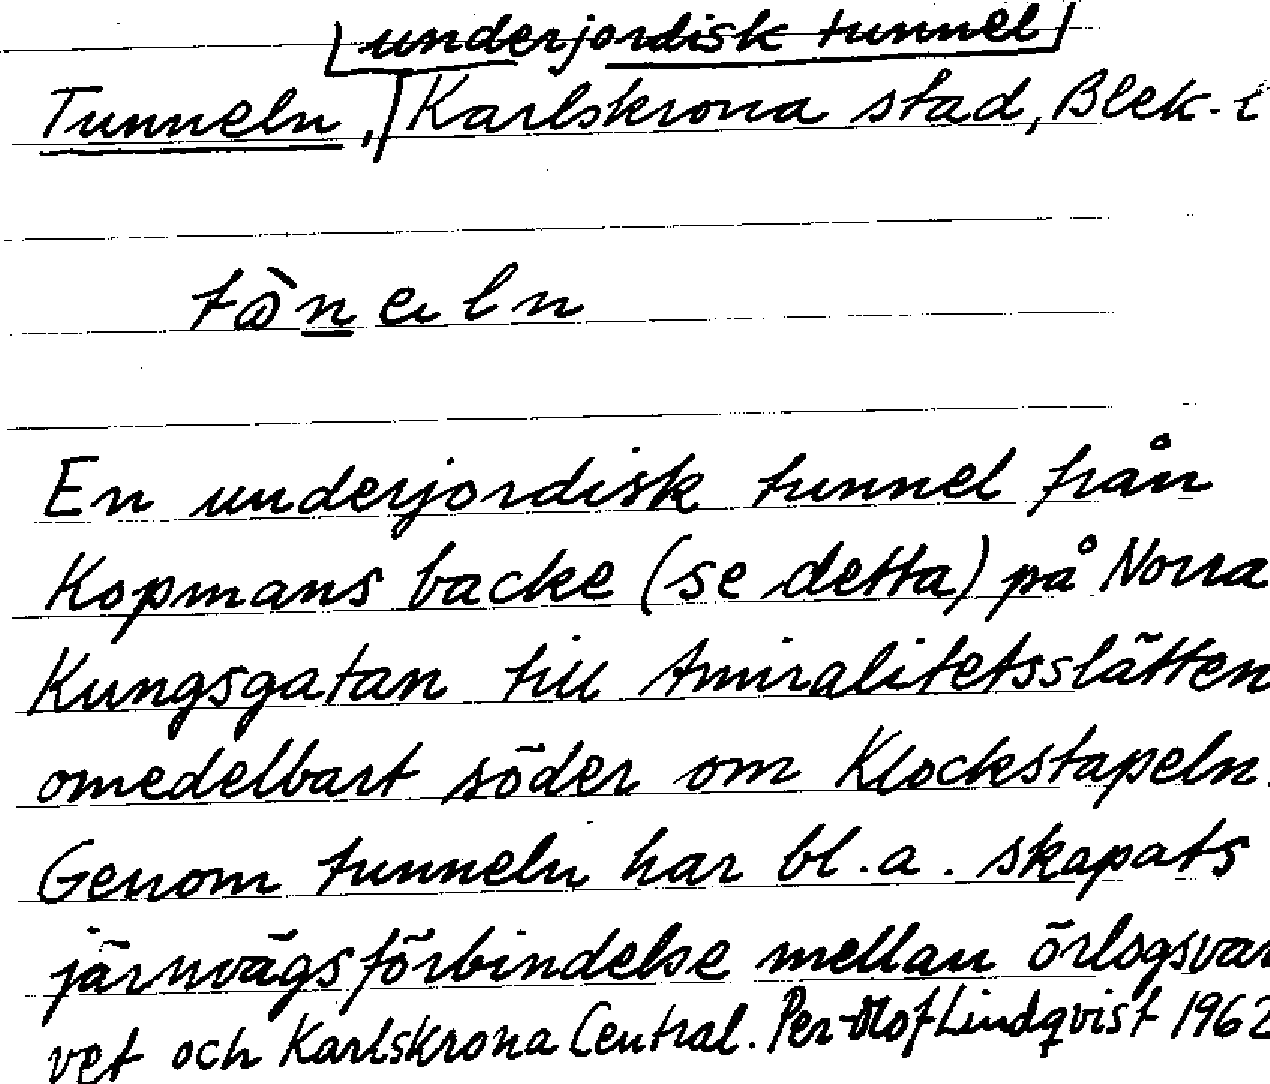 underjordisk tunnel
Tunneln, Karlskrona stad, Blek-
En underjordisk tunnel från
Kopmans backe (se detta) på Norra
Kungsgatan till Amiralitetsslätten
omedelbart söder om Klockstapeln.
Genom tunneln har bl.a. skapats
järnvägsförbindelse mellan örlogsvar
vet och Karlskrona Central. Per-Olof Lindqvist 1962